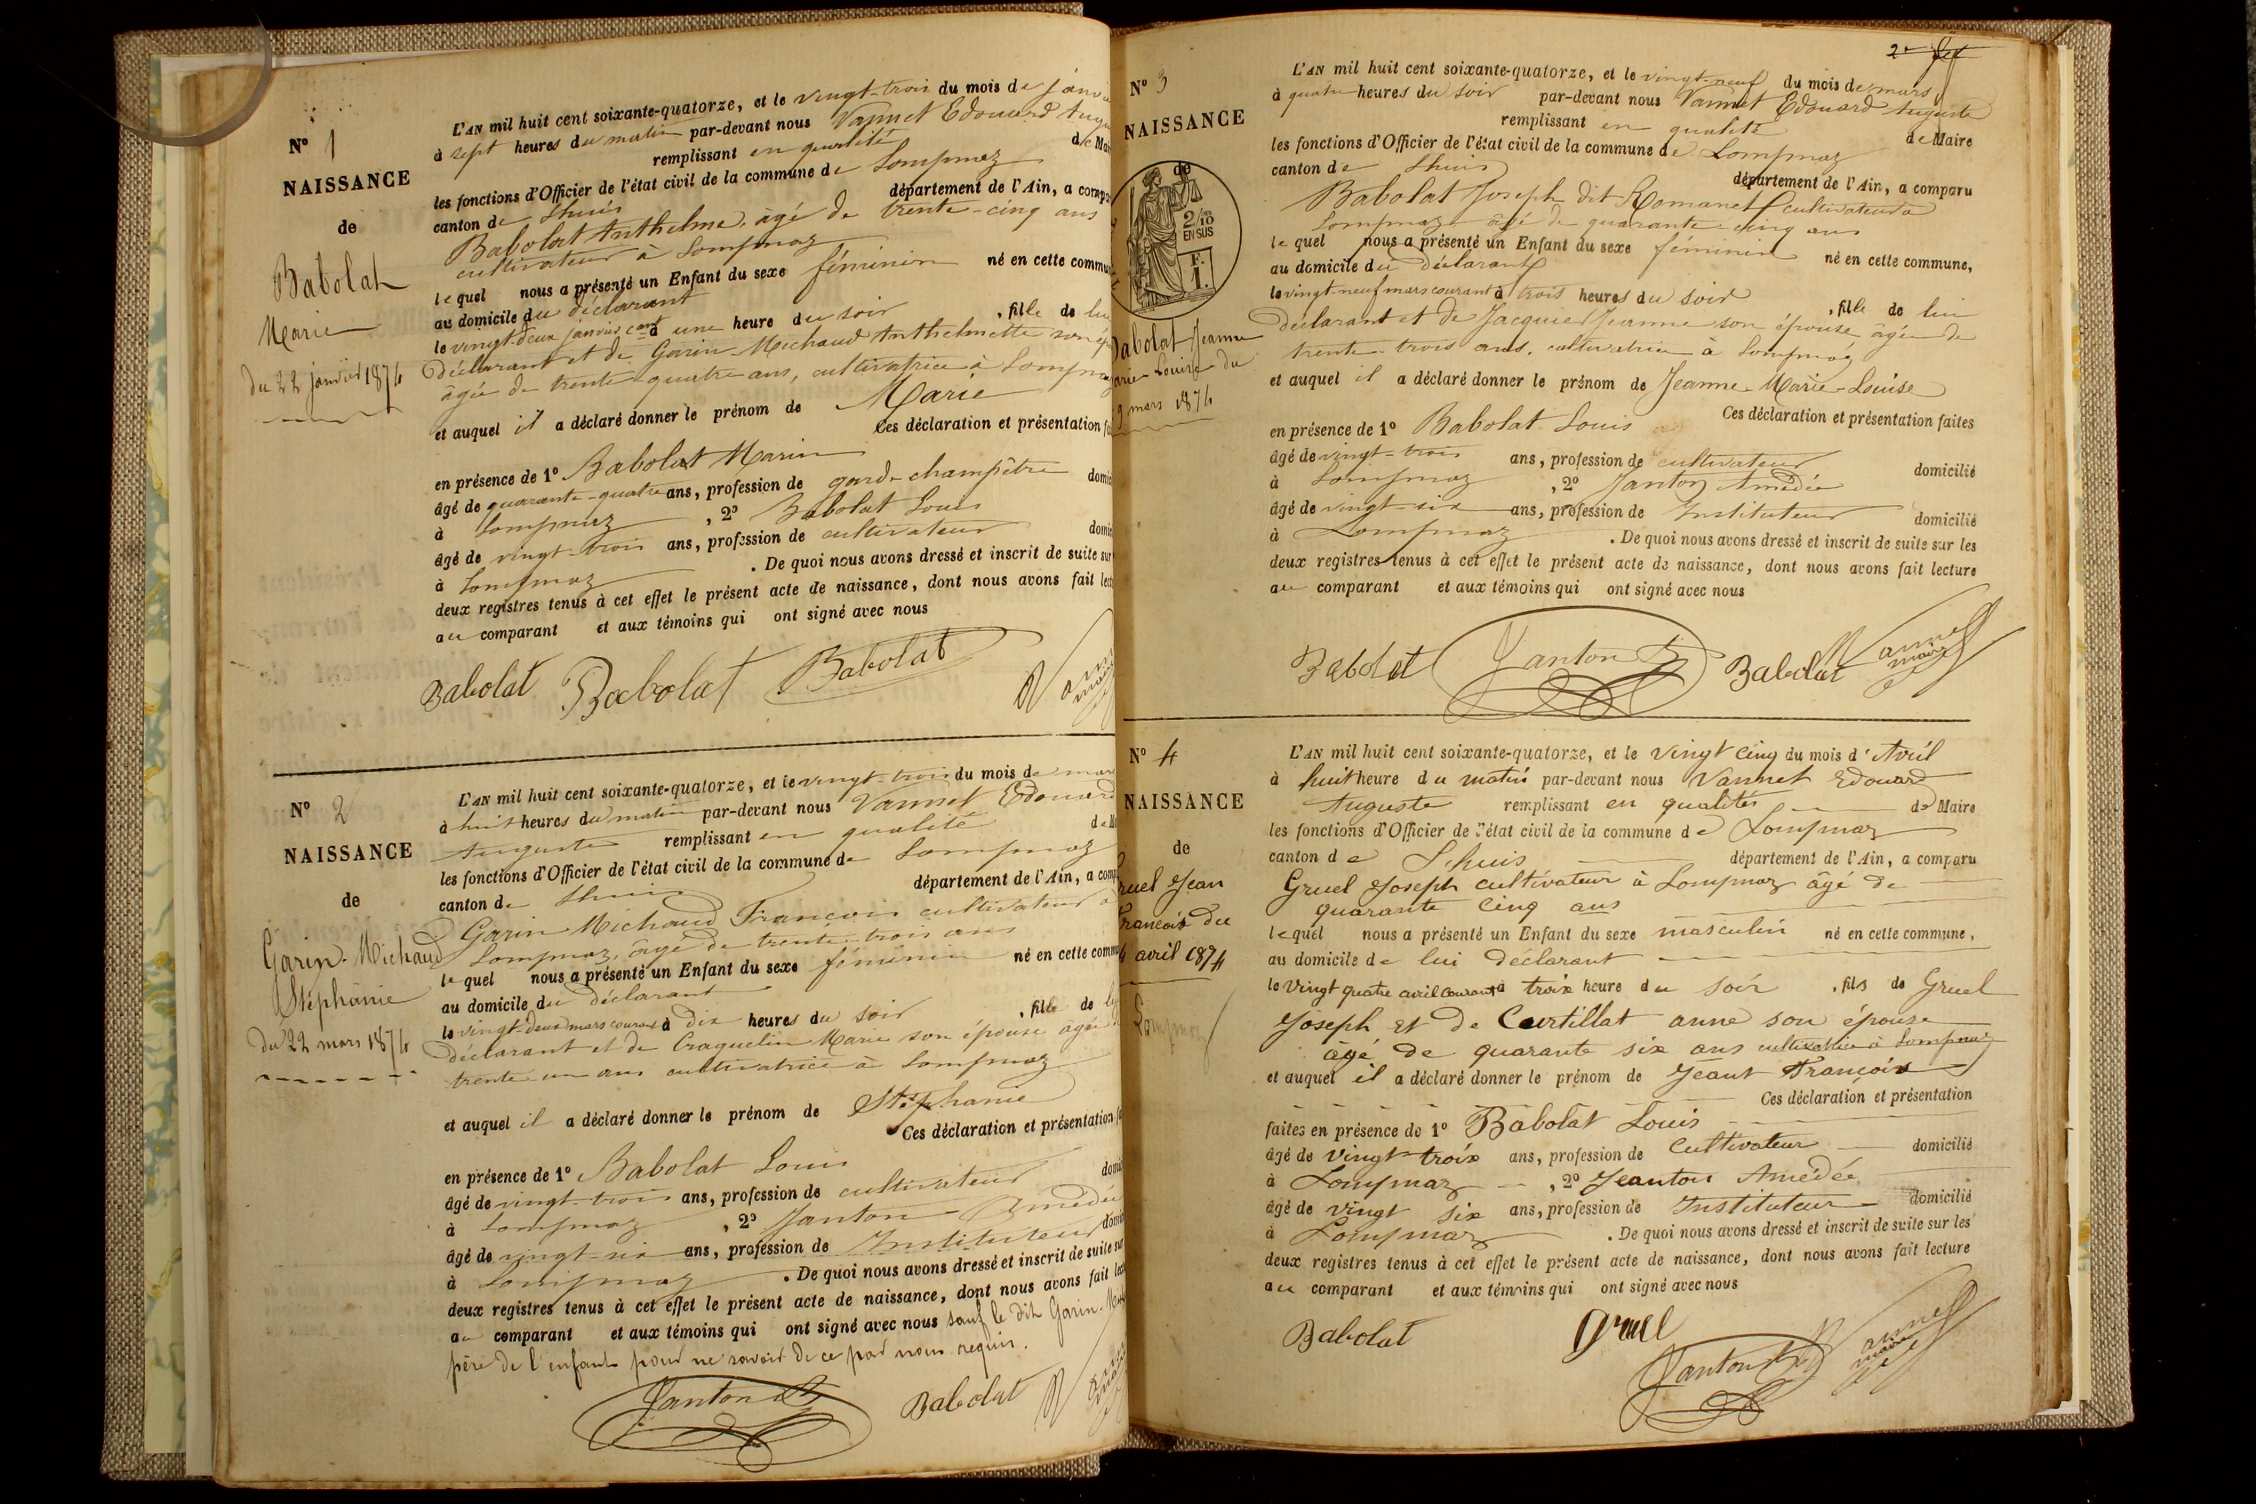 Nº 1
NAISSANCE
de
Babolat
Marie
du 22 janvier 1874
L'AN mil huit cent soixante-quatorze, et le vingt-trois du mois de janvi
à sept heures du matin par-devant nous Vannet Edouard Augu
remplissant en qualité de Mai
les fonctions d'Officier de l'état civil de la commune de Lompnaz
canton de Lhuis département de l'Ain, a compa
Babolat Anthelme, âgé de trente-cinq ans
cultivateur à Lompnaz
lequel nous a présenté un Enfant du sexe féminin né en cette commu
au domicile du déclarant
le vingt-deux janvier cant à une heure du soir, fille de lui
déclarant et de Garin-Michaud Anthelmette son ép
âgée de trente-quatre ans, cultivatrice à Lompnaz
et auquel il a déclaré donner le prénom de Marie
Ces déclaration et présentation fa
en présence de 1º Babolat Marin
âgé de quarante-quatre ans, profession de garde-champêtre domic
à Lompnaz, 2º Babolat Louis
âgé de vingt-trois ans, profession de cultivateur domic
à Lompnaz. De quoi nous avons dressé et inscrit de suite sur
deux registres tenus à cet effet le présent acte de naissance, dont nous avons fait lect
au comparant et aux témoins qui ont signé avec nous
Babolat Babolat Babolat
Nº 2
NAISSANCE
de
Garin-Michaud
Stéphanie
du 22 mars 1874
L'AN mil huit cent soixante-quatorze, et le vingt-trois du mois de mar
à huit heures du matin par-devant nous Vannet Edouard
Auguste remplissant en qualité de M
les fonctions d'Officier de l'état civil de la commune de Lompnaz
canton de Lhuis département de l'Ain, a comp
Garin-Michaud François cultivateur à
Lompnaz, âgé de trente-trois ans
lequel nous a présenté un Enfant du sexe féminin né en cette commu
au domicile du déclarant
le vingt-deux mars courant à dix heures du soir, fille de lui
déclarant et de Craquelin Marie son épouse âgée de
trente-un ans cultivatrice à Lompnaz
et auquel il a déclaré donner le prénom de Stéphanie
Ces déclaration et présentation fa
en présence de 1º Babolat Louis
âgé de vingt-trois ans, profession de cultivateur domic
à Lompnaz, 2º Janton Amédée
âgé de vingt-six ans, profession de Instituteur domic
à Lompnaz. De quoi nous avons dressé et inscrit de suite sur
deux registres tenus à cet effet le présent acte de naissance, dont nous avons fait lect
au comparant et aux témoins qui ont signé avec nous sauf le dit Garin-Mich
père de l'enfant pour ne savoir de ce par nous requis.
Janton Babolat
2e
Nº 3
NAISSANCE
de
2/10 EN SUS
F. 1.
Babolat Jeanne
Marie-Louise du
9 mars 1874
L'AN mil huit cent soixante-quatorze, et le vingt-neuf du mois de mars
à quatre heures du soir par-devant nous Vannet Edouard Auguste
remplissant en qualité de Maire
les fonctions d'Officier de l'état civil de la commune de Lompnaz
canton de Lhuis département de l'Ain, a comparu
Babolat Joseph dit Romanet cultivateur à
Lompnaz âgé de quarante-cinq ans
lequel nous a présenté un Enfant du sexe féminin né en cette commune,
au domicile du déclarant
le vingt-neuf mars courant à trois heures du soir, fille de lui
déclarant et de Jacquier Jeanne son épouse âgée de
trente-trois ans, cultivatrice à Lompnaz
et auquel il a déclaré donner le prénom de Jeanne-Marie-Louise
Ces déclaration et présentation faites
en présence de 1º Babolat Louis
âgé de vingt-trois ans, profession de cultivateur domicilié
à Lompnaz, 2º Janton Amédée
âgé de vingt-six ans, profession de Instituteur domicilié
à Lompnaz. De quoi nous avons dressé et inscrit de suite sur les
deux registres tenus à cet effet le présent acte de naissance, dont nous avons fait lecture
au comparant et aux témoins qui ont signé avec nous
Babolat Janton Babolat
Nº 4
NAISSANCE
de
ruel Jean
François du
4 avril 1874
Lompnaz
L'AN mil huit cent soixante-quatorze, et le vingt cinq du mois d'Avril
à huit heure du matin par-devant nous Vannet Edouard
Auguste remplissant en qualités de Maire
les fonctions d'Officier de l'état civil de la commune de Lompnaz
canton de Lhuis département de l'Ain, a comparu
Gruel Joseph cultivateur à Lompnaz âgé de
quarante cinq ans
lequel nous a présenté un Enfant du sexe masculin né en cette commune,
au domicile de lui déclarant
le vingt quatre avril courant à trois heure du soir, fils de Gruel
Joseph et de Curtillat anne son épouse
âgé de quarante six ans cultivatrice à Lompnaz
et auquel il a déclaré donner le prénom de Jeant François
Ces déclaration et présentation
faites en présence de 1º Babolat Louis
âgé de vingt trois ans, profession de Cultivateur domicilié
à Lompnaz, 2º Jeanton Amédée
âgé de vingt six ans, profession de Instituteur domicilié
à Lompnaz. De quoi nous avons dressé et inscrit de suite sur les
deux registres tenus à cet effet le présent acte de naissance, dont nous avons fait lecture
au comparant et aux témoins qui ont signé avec nous
Babolat Gruel
Janton